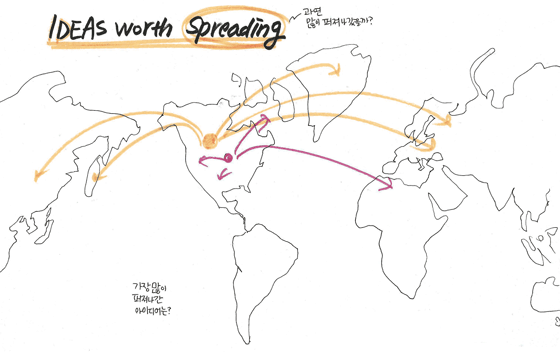 IDEAS worth Spreading
과연
많이 퍼져나갔을까?
가장 많이
퍼져나간
아이디어는?